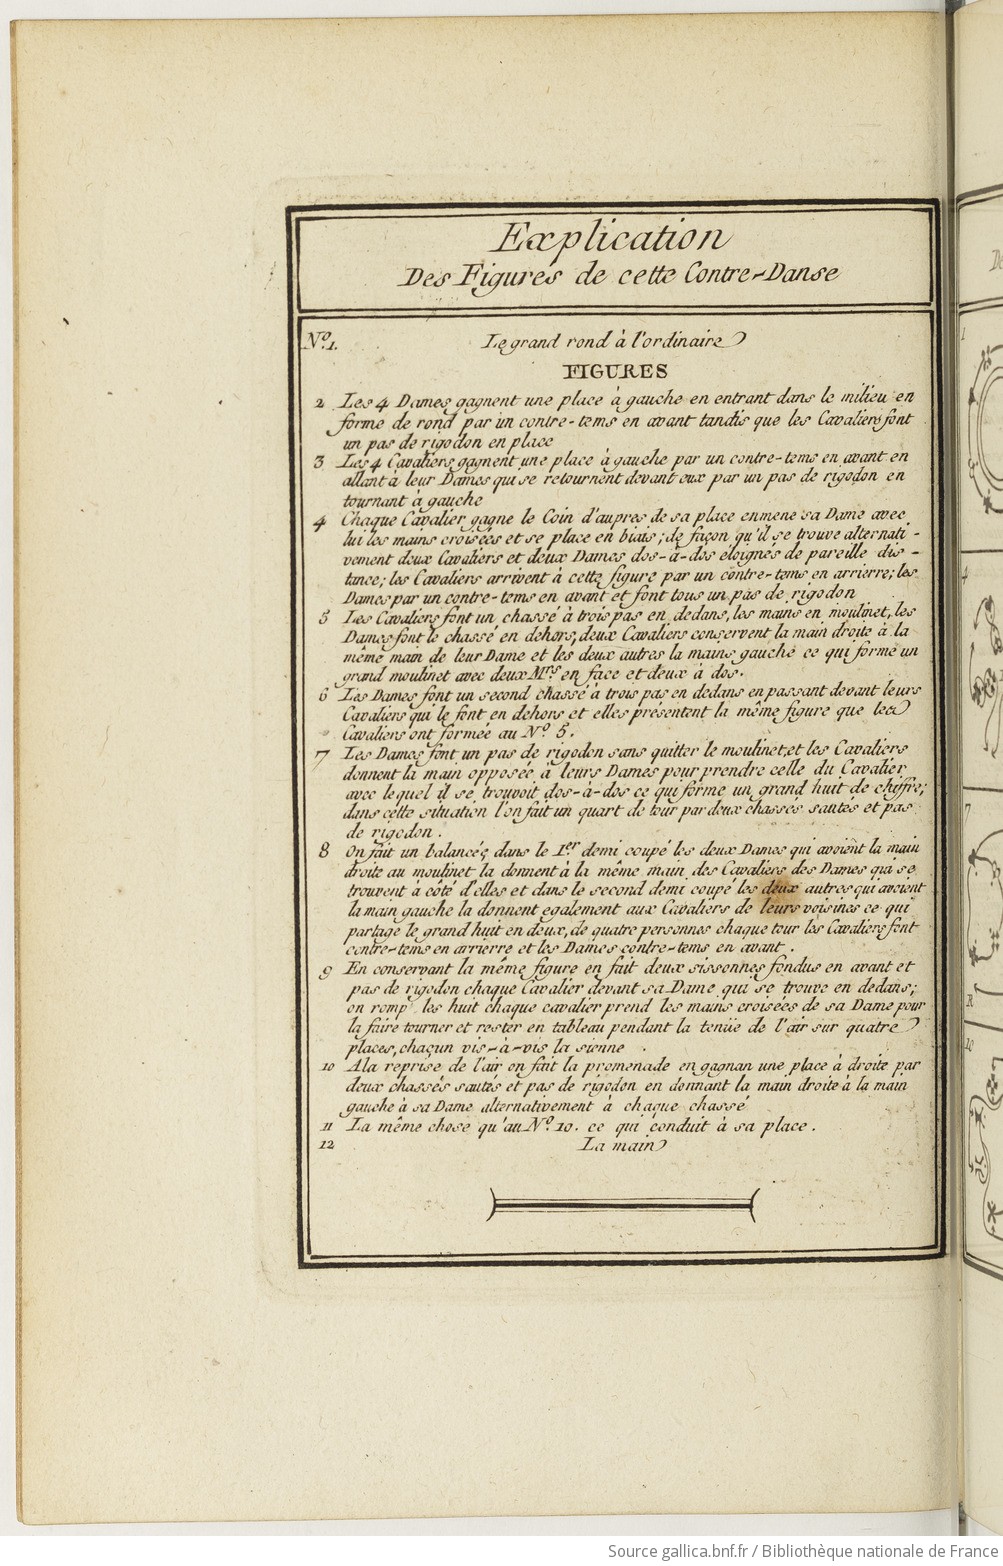 Explication
Des Figures de cette Contre-Danse
Nº1. Le grand rond à l'ordinaire
FIGURES
2 Les 4 Dames gagnent une place à gauche en entrant dans le milieu en
forme de rond par un contre-tems en avant tandis que les Cavaliers font
un pas de rigodon en place
3 Les 4 Cavaliers gagnent une place à gauche par un contre-tems en avant en
allant à leur Dames qui se retournent devant eux par un pas de rigodon en
tournant à gauche
4 Chaque Cavalier gagne le Coin d'aupres de sa place enmene sa Dame avec
lui les mains croisées et se place en biais; de façon qu'il se trouve alternati-
vement deux Cavaliers et deux Dames dos-à-dos eloignés de pareille dis-
tance; les Cavaliers arrivent à cette figure par un contre-tems en arriere; les
Dames par un contre-tems en avant et font tous un pas de rigodon
5 Les Cavaliers font un chassé à trois pas en dedans, les mains en moulinet, les
Dames font le chassé en dehors, deux Cavaliers conservent la main droite à la
même main de leur Dame et les deux autres la mains gauche ce qui forme un
grand moulinet avec deux Mrs en face et deux à dos.
6 Les Dames font un second chassé à trois pas en dedans en passant devant leurs
Cavaliers qui le font en dehors et elles présentent la même figure que les
Cavaliers ont formée au Nº 5.
7 Les Dames font un pas de rigodon sans quitter le moulinet, et les Cavaliers
donnent la main opposée à leurs Dames pour prendre celle du Cavalier
avec lequel il se trouvoit dos-à-dos ce qui forme un grand huit de chiffre;
dans cette situation l'on fait un quart de tour par deux chassés sautés et pas
de rigodon.
8 On fait un balancés dans le 1er demi coupé les deux Dames qui avoient la main
droite au moulinet la donnent à la même main des Cavaliers des Dames qui se
trouvent à côté d'elles et dans le second demi coupé les deux autres qui avoient
la main gauche la donnent egalement aux Cavaliers de leurs voisines ce qui
partage le grand huit en deux, de quatre personnes chaque tour les Cavaliers font
contre-tems en arrierre et les Dames contre-tems en avant.
9 En conservant la même figure en fait deux sissonnes fondus en avant et
pas de rigodon chaque Cavalier devant sa Dame qui se trouve en dedans;
on romp les huit chaque cavalier prend les mains croisées de sa Dame pour
la faire tourner et rester en tableau pendant la tenüe de l'air sur quatre
places, chaçun vis-à-vis la sienne.
10 A la reprise de l'air on fait la promenade en gagnan une place à droite par
deux chassés sautés et pas de rigodon en donnant la main droite à la main
gauche à sa Dame alternativement à chaque chassé
11 La même chose qu'au Nº 10. ce qui conduit à sa place.
12 La main
1
4
7
R
10
Source gallica.bnf.fr / Bibliothèque nationale de France